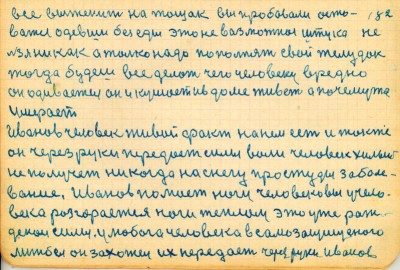 все выженит на тощак вы пробовали оста- 182
ватся одевши без еди это не возможная штука не
лзя никак а толко надо пополнят свой желудок
тогда будеш все делот чего человеку вредно
он одивается он и кушает и в доме живет а почему та
умерает
Иванов человек живой факт на нем ест и тоже
он через руки передает силы воли человек хилый
не получет никогда на снегу простуду и заболе-
вание, Иванов помоет ноги человеку и у чело-
века розгорается ноги теплом это уже рож-
деная сила. у любога человека в самозащищеного
он захожен их передает через руки Иванов